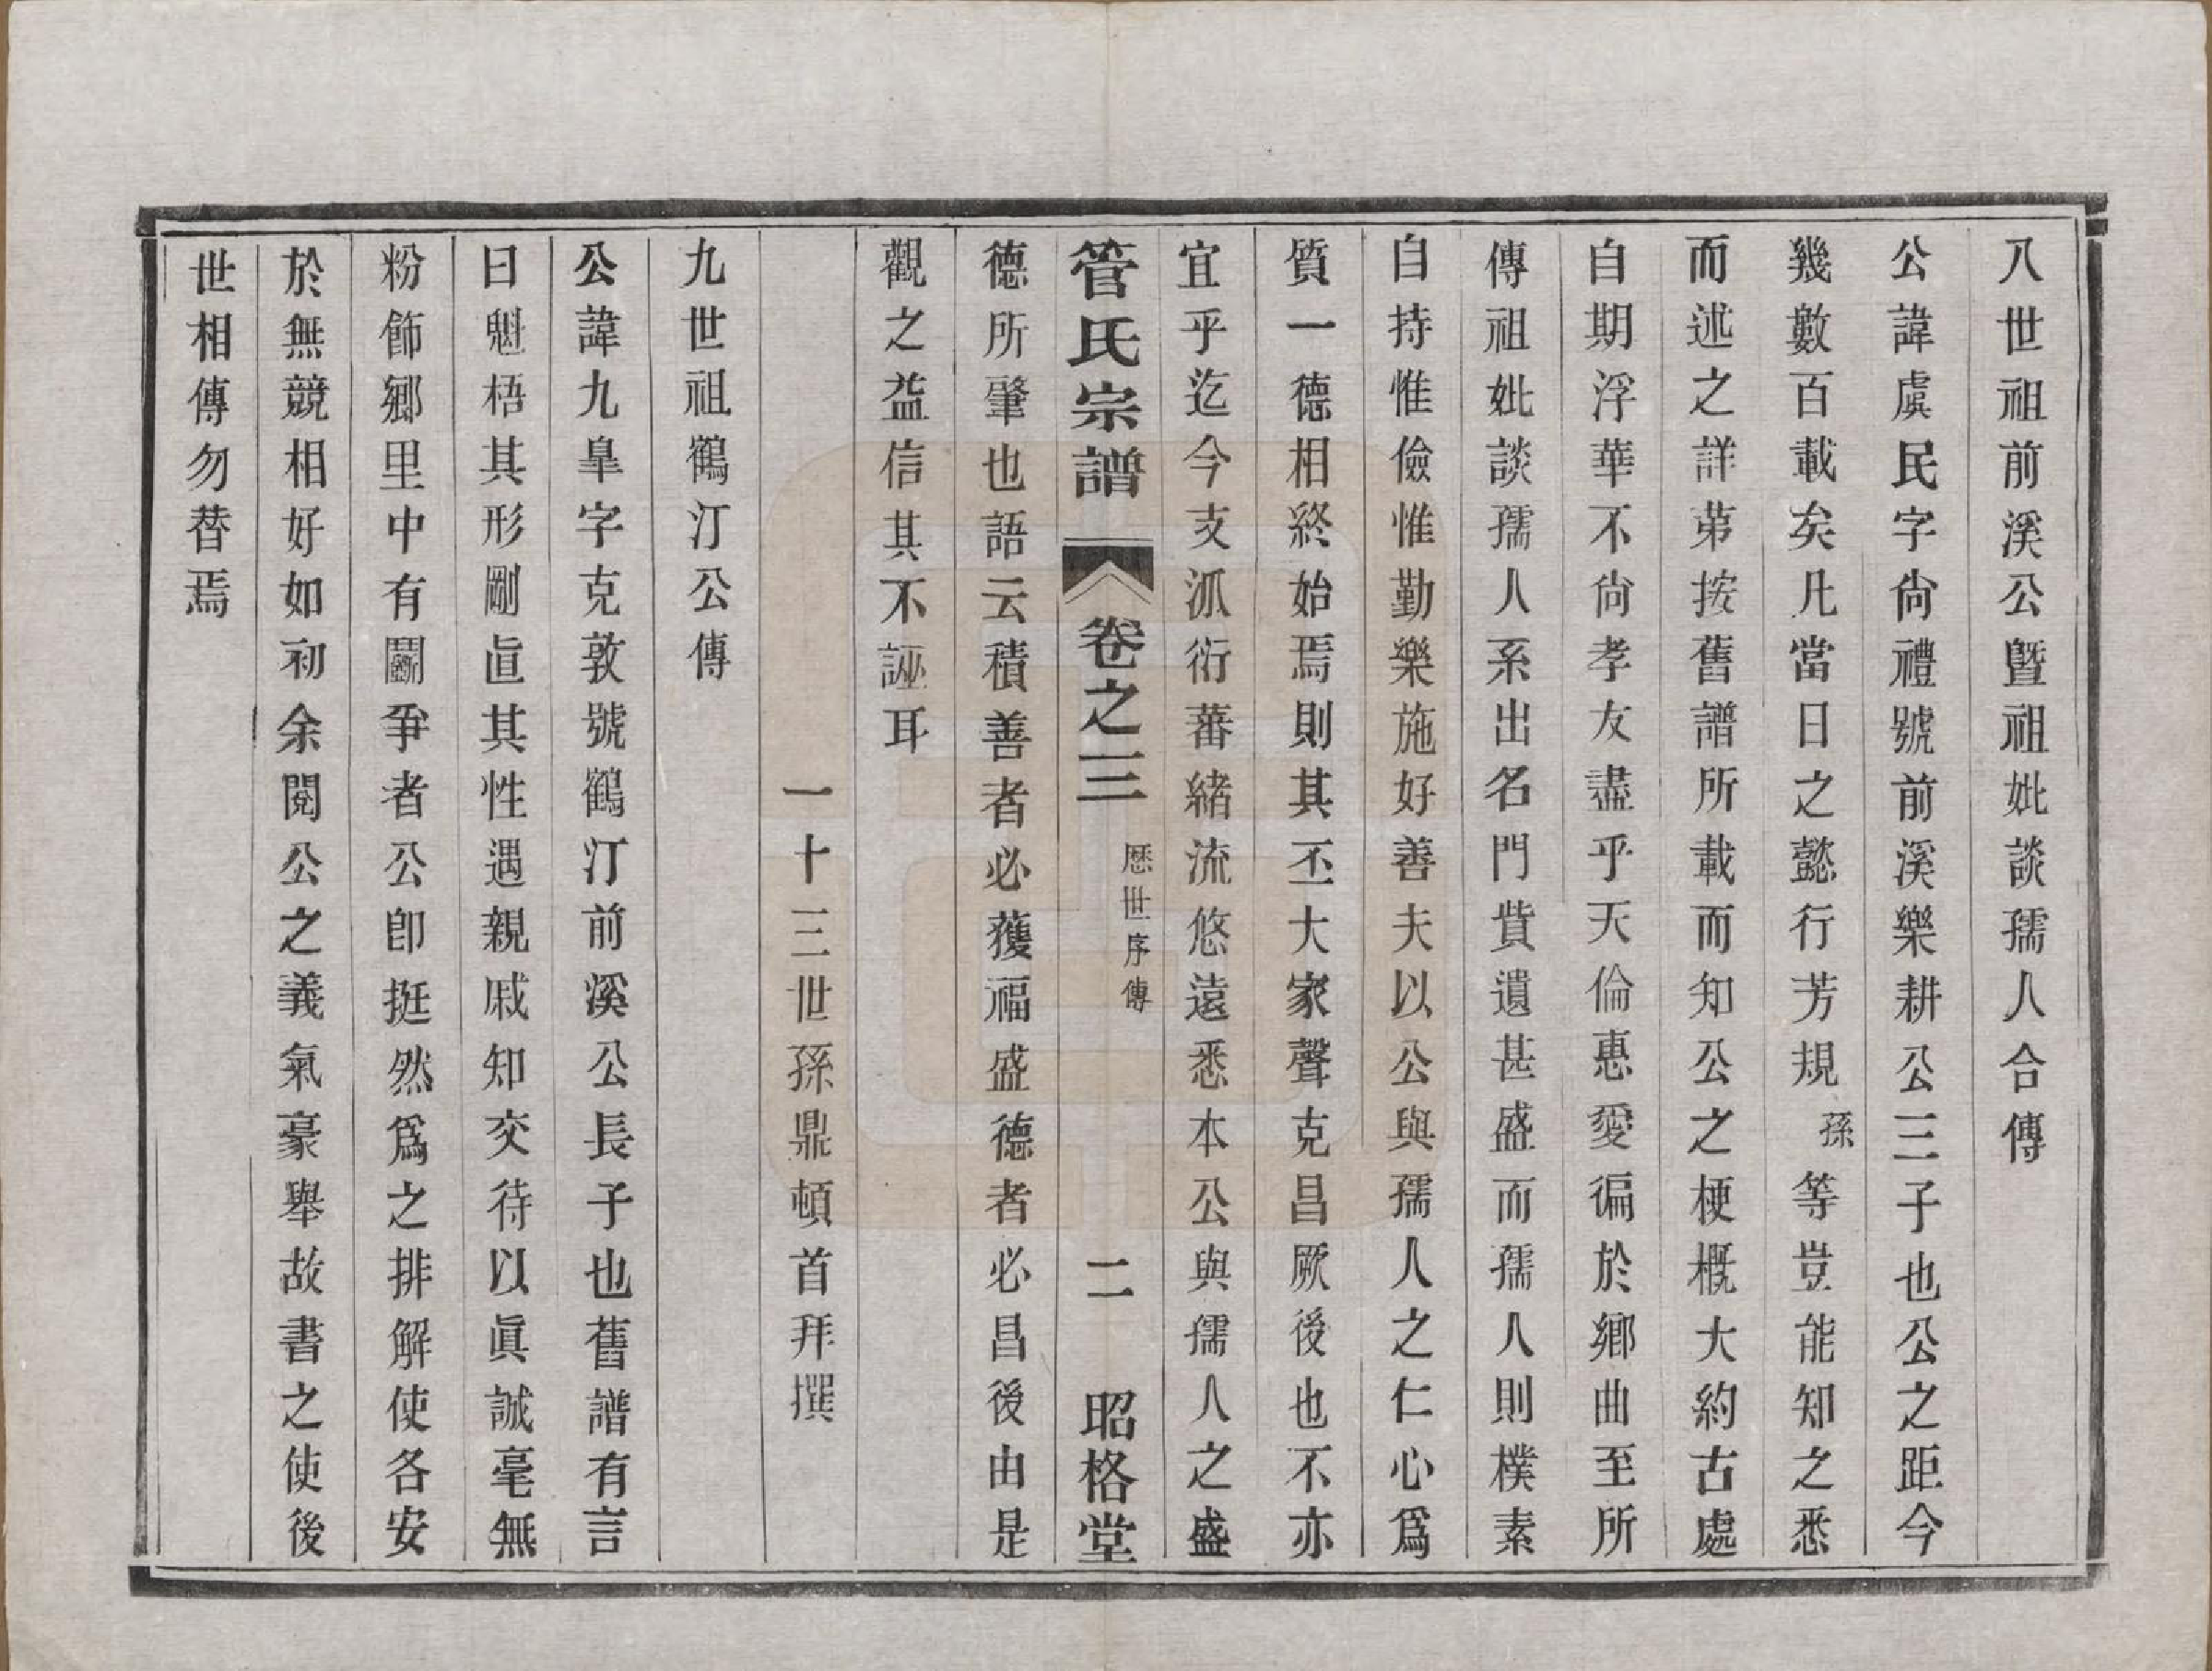 八世祖前溪公曁祖妣談孺人合傳
公諱虞民字尙禮號前溪樂耕公三子也公之距今
幾數百載矣凡當日之懿行芳規孫等豈能知之悉
而述之詳第按舊譜所載而知公之梗概大約古處
自期浮華不尙孝友盡乎天倫惠愛徧於鄉曲至所
傳祖妣談孺人系出名門貲遺甚盛而孺人則樸素
自持惟儉惟勤樂施好善夫以公與孺人之仁心爲
質一德相終始焉則其丕大家聲克昌厥後也不亦
宜乎迄今支派衍蕃緒流悠遠悉本公與孺人之盛
管氏宗譜 卷之三 歷世序傳 二 昭格堂
德所肇也語云積善者必獲福盛德者必昌後由是
觀之益信其不誣耳
一十三世孫鼎頓首拜撰
九世祖鶴汀公傳
公諱九臯字克敦號鶴汀前溪公長子也舊譜有言
曰魁梧其形剛直其性遇親戚知交待以眞誠毫無
粉飾鄉里中有鬭爭者公卽挺然爲之排解使各安
於無競相好如初余閱公之義氣豪舉故書之使後
世相傳勿替焉